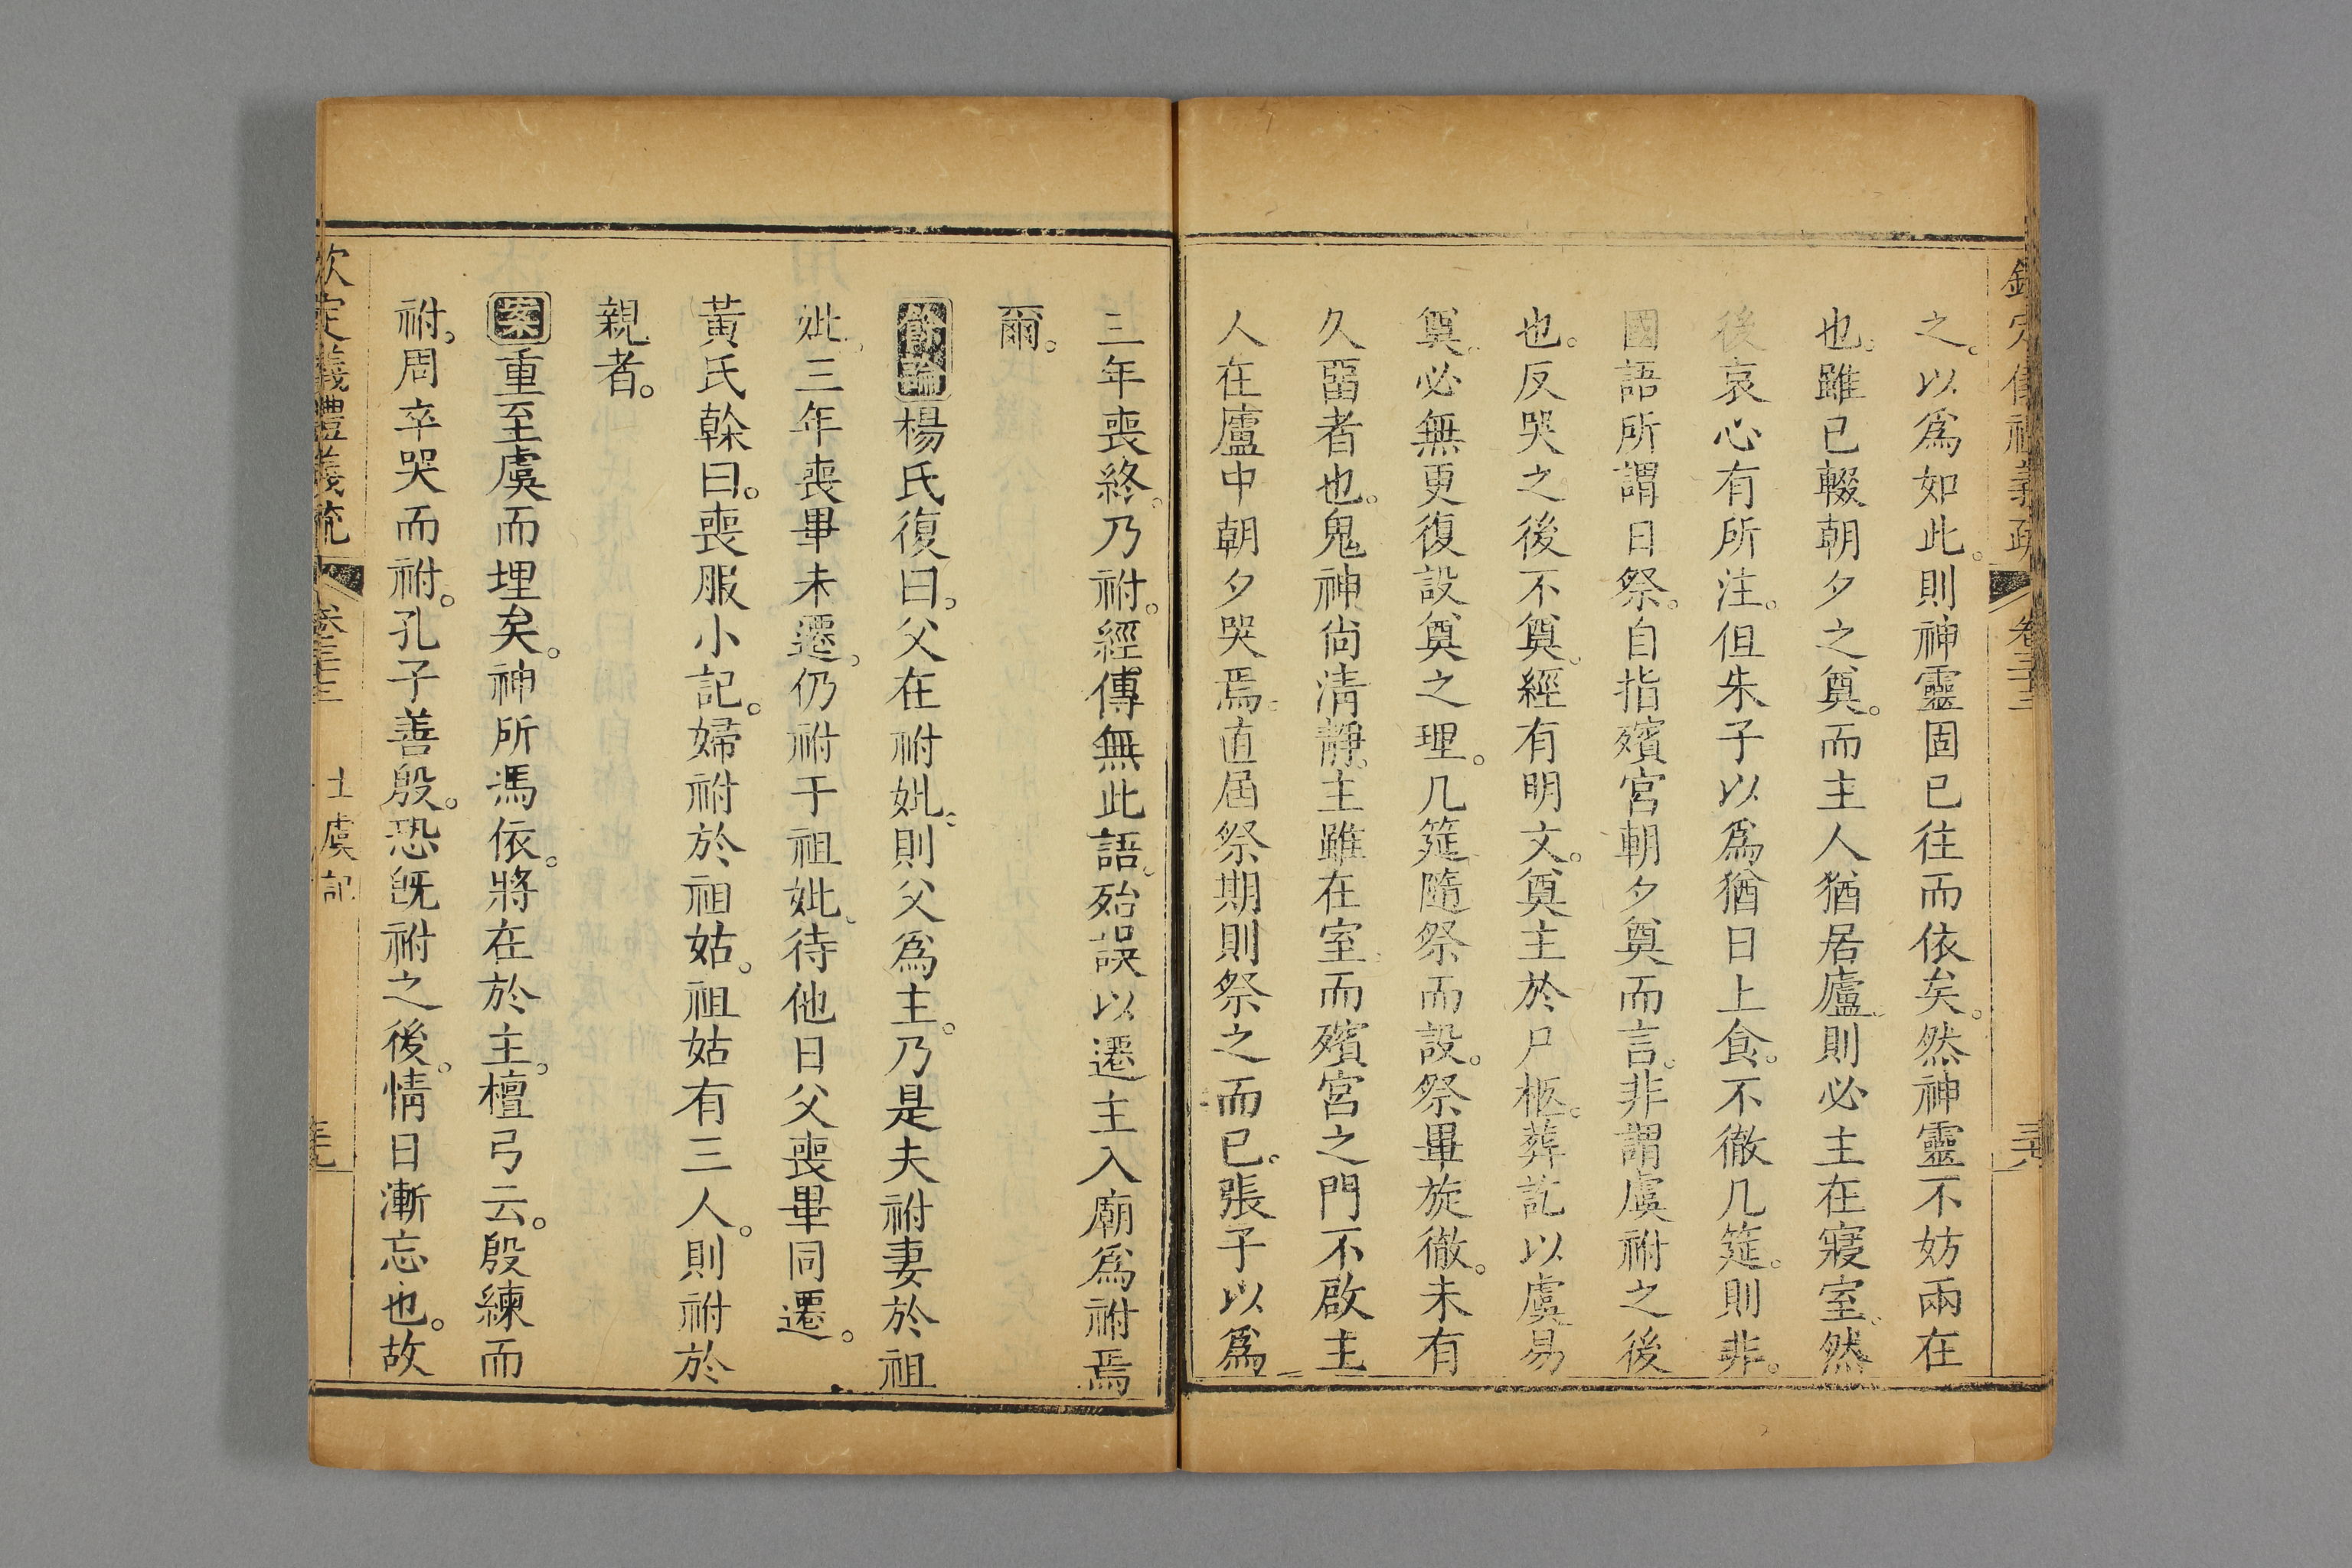 欽定儀禮義疏 卷三十三 三十八
之。以爲如此。則神靈固已往而依矣。然神靈不妨兩在
也。雖已輟朝夕之奠。而主人猶居廬。則必主在寢室。然
後哀心有所注。但朱子以爲猶日上食。不徹几筵。則非。
國語所謂日祭。自指殯宮朝夕奠而言。非謂虞祔之後
也。反哭之後不奠。經有明文。奠主於尸柩。葬訖以虞易
奠。必無更復設奠之理。几筵隨祭而設。祭畢旋徹。未有
久畱者也。鬼神尙淸靜。主雖在室。而殯宮之門不啟。主
人在廬中朝夕哭焉。直屆祭期則祭之而已。張子以爲
三年喪終。乃祔。經傳無此語。殆誤以遷主入廟爲祔焉
爾。
餘論楊氏復曰。父在祔妣。則父爲主。乃是夫祔妻於祖
妣。三年喪畢未遷。仍祔于祖妣。待他日父喪畢同遷。
黃氏榦曰。喪服小記。婦祔於祖姑。祖姑有三人。則祔於
親者。
案重至虞而埋矣。神所馮依。將在於主。檀弓云。殷練而
祔。周卒哭而祔。孔子善殷。恐旣祔之後。情日漸忘也。故
欽定儀禮義疏 卷三十三 士虞記 三十九